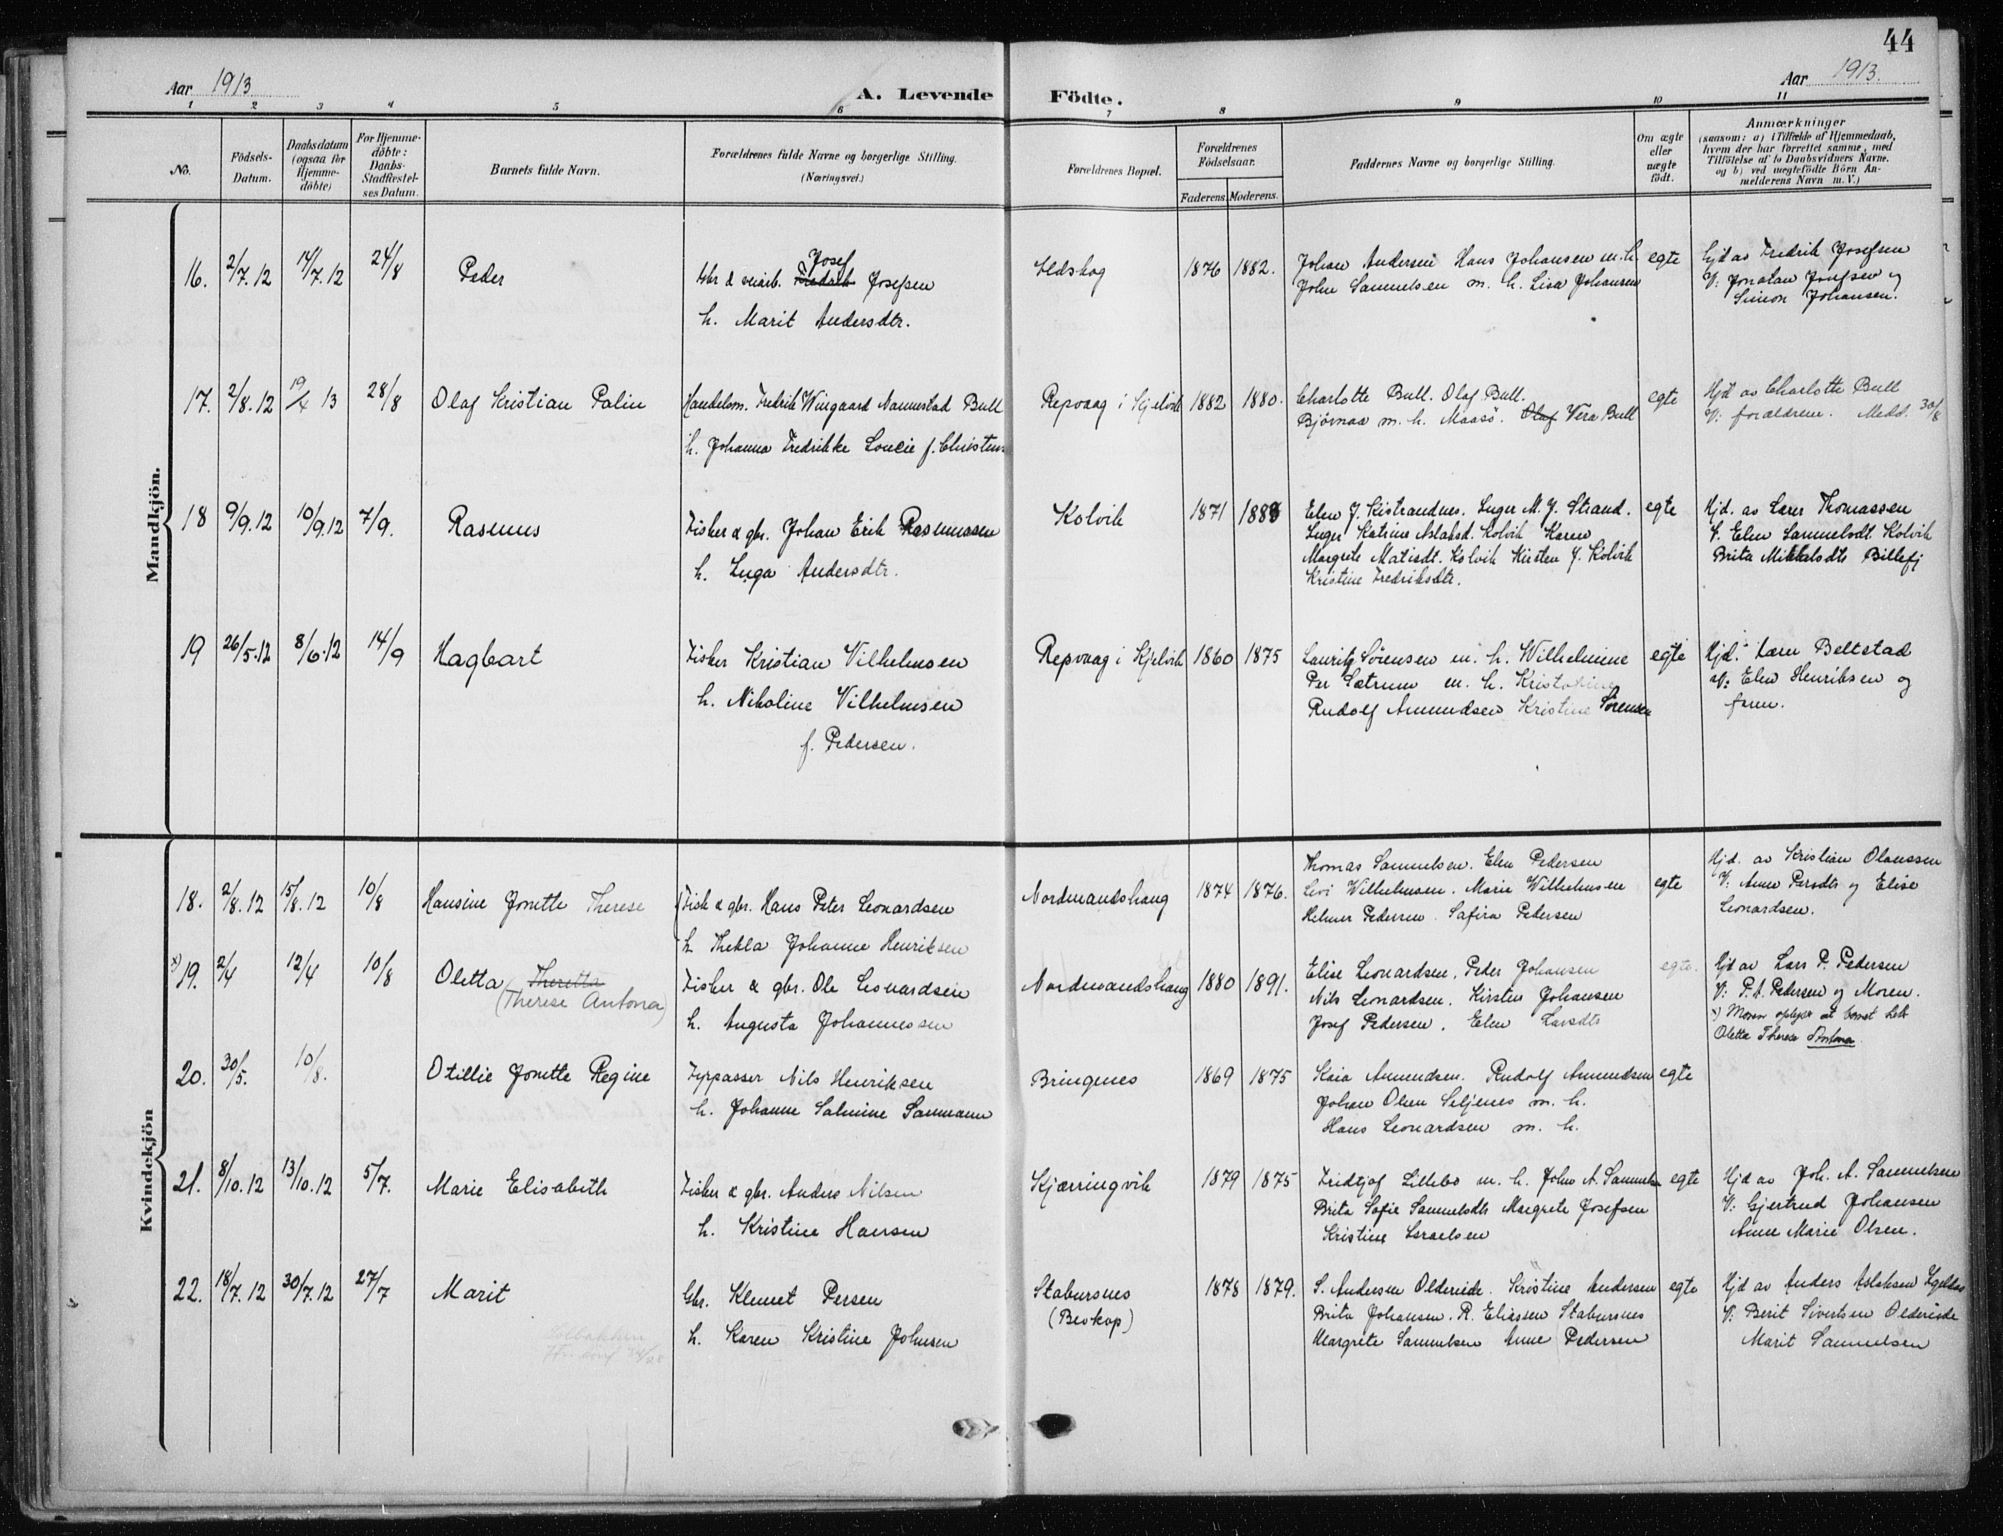 44
Aar 1913
A. Levende Födte.
Aar 1913.
1 2 3 4 5 6 7 8 9 10 11
No.
Födsels-Datum.
Daabsdatum (ogsaa for Hjemme-döbte)
For Hjemme-döbte: Daabs-Stadfæstel-ses Datum.
Barnets fulde Navn.
Forældrenes fulde Navne og borgerlige Stilling. (Næringsvei.)
Forældrenes Bopæl.
Forældrenes Födselsaar.
Faderens. Moderens.
Faddernes Navne og borgerlige Stilling.
Om ægte eller uægte födt.
Anmærkninger
(saasom: a) i Tilfælde af Hjemmedaab,
hvem der har forrettet samme, med
Tilföielse af to Daabsvidners Navne.
og b) ved uægtefödte Börn An-
melderens Navn m. V.)
Mandkjön.
16. 2/7.12 14/7.12 24/8 Peder
Josef
Gbr & veiarb. Fredrik Josefsen
h. Marit Andersdtr.
1876 1882.
Johan Andersen Hans Johansen m. h.
John Samuelsen m. h. Lisa Johansen
egte
Hjd av Fredrik Josefsen
V: Jonatan Josefsen og
Simon Johansen.
17. 2/8.12 19/4 13 28/8 Olaf Kristian Palin
Handelsm. Fredrik Wingaard Nannestad Bull
h. Johanna Fredrikke Loucie f. Christens
Repvaag i Kjelvik 1882 1880.
Charlotte Bull. Olaf Bull.
Bjørnaa m. h. Maasø. Olaf Vera Bull
egte
Hjd av Charlotte Bull
V: forældrene. Medd. 30/8
18 9/9.12 10/9.12 7/9. Rasmus
Fisker & gbr. Johan Erik Rasmussen
h. Inga Andersdtr.
Kolvik 1871 1888
Elen J. Kistrandnes. Inger M. J. Strand.
Inger Katrine Aslaksd. Kolvik Karen
Margrete Matisdt. Kolvik Kirsten J. Kolvik
Kristine Fredriksdtr.
egte
Hjd. av Lars Thomassen
V. Elen Samuelsdt. Kolvik
Brita Mikkelsdtr Billefj
19 26/5.12 8/6.12 14/9 Hagbart
Fisker Kristian Vilhelmsen
h. Nikoline Vilhelmsen
f. Pedersen.
Repvaag i Kjelvik 1860 1875
Lauritz Sørensen m. h. Wilhelmine
Per Sætrum m. h.
Rudolf Amundsen Kristine Sørensen
egte
Hjd. Beltstad
V: Elen Henriksen og
Kvindekjön
18. 2/8.12 15/8.12 10/8 Hansine Jonette Therese
Fisk & gbr. Hans Peter Leonardsen
h. Thekla Johanne Henriksen
Nordmandshaug 1874 1876.
Thomas Samuelsen. Elen Pedersen
Levi Wilhelmsen. Marie Wilhelmsen
Helmer Pedersen. Safira Pedersen
egte
Hjd. av Kristian Olaussen
V: Anne Persdtr og Elise
Leonardsen.
x) 19. 2/4 12/4 10/8 Oletta Theretta
(Therese Antona)
Fisker & gbr. Ole Leonardsen
h. Augusta Johannessen
Nordmandshaug 1880 1891.
Elise Leonardsen. Peder Johansen
Nils Leonardsen. Kirsten Johansen
Josef Pedersen. Elen Larsdtr
egte.
Hjd av Lars P. Pedersen
V: P. A. Pedersen og Moren.
x) Moren oplyser at barnet heter
Oletta Therese Antona.
20. 30/5. 10/8. Otillie Jonette Regine
Fyrpasser Nils Henriksen
h. Johanne Salmine Sammann
Bringenes 1869 1875
Kaia Amundsen. Rudolf Amundsen
Johan Olsen Seljenes m. h.
Hans Leonardsen m. h.
egte
21. 8/10.12 13/10.12 5/7. Marie Elisabeth
Fisker & gbr. Anders Nilsen
h. Kristine Hansen
Kjærringvik 1879 1875
Fridtjof Lillebo m. h. John A. Samuelsen
Brita Sofie Samuelsdtr Margrete Josefsen
Kristine Israelsen
egte
Hjd av Joh. A. Samuelsen
V: Gjertrud Johansen
Anne Marie Olsen.
22. 18/7.12 30/7.12 27/7 Marit
Gbr. Klemet Persen
h. Karen Kristine Johnsen
Stabursnes
(Bevkop)
1878 1879.
S. Andersen Oldereide. Kristine Andersen
Brita Johansen. R. Eliassen Stabursnes
Margrete Samuelsen Anne Pedersen
egte
Hjd av Anders Aslaksen
V: Berit Sivertsen Oldereide
Marit Samuelsen